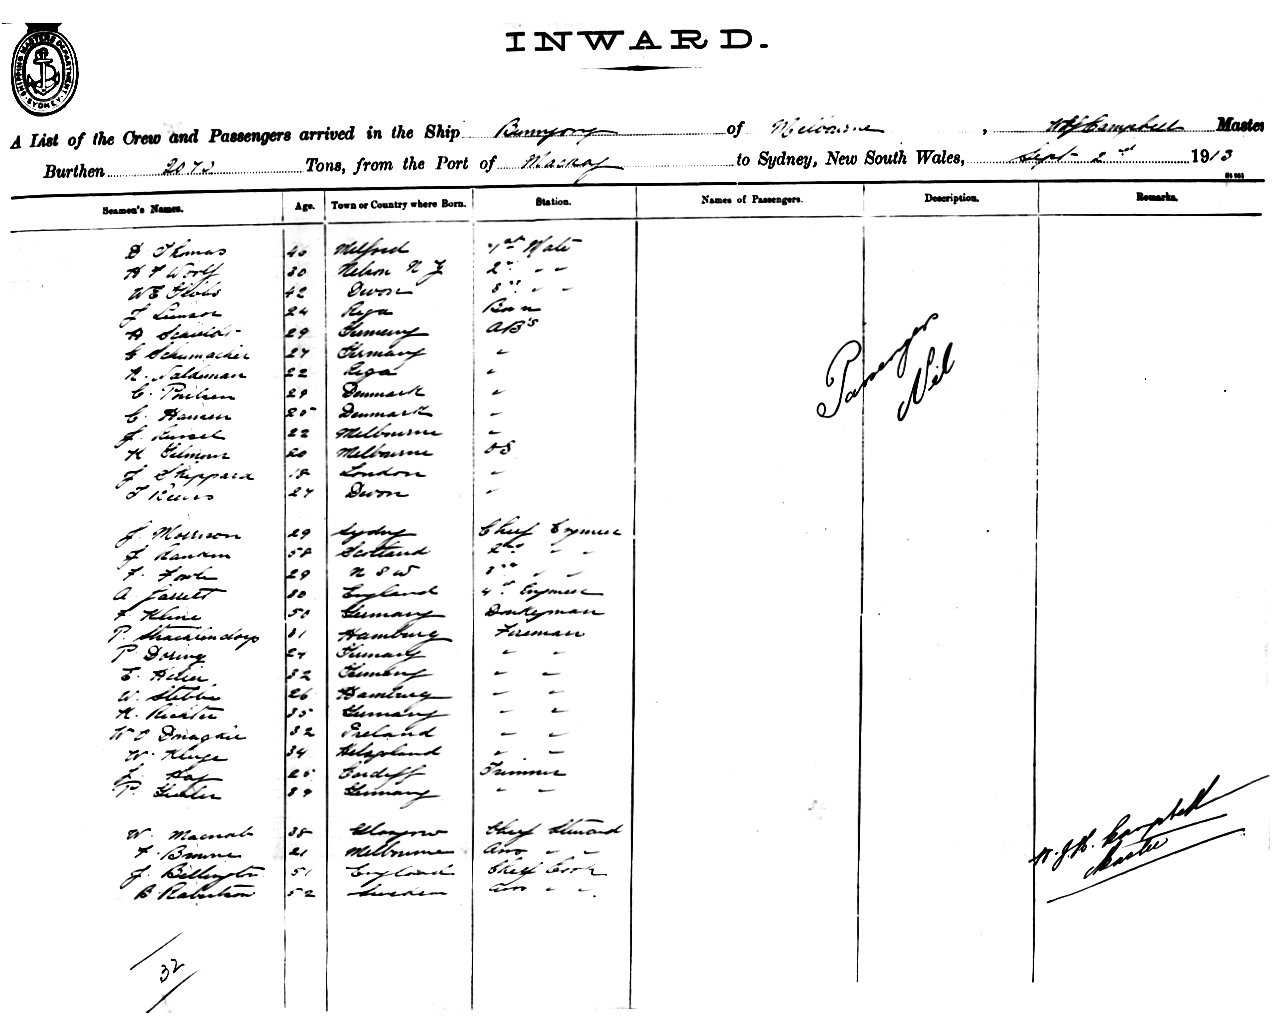 SHIPPING MASTERS DEPARTMENT SYDNEY
INWARD.
A List of the Crew and Passengers arrived in the Ship Bunnyong of Melbourne, Campbell Master
Burthen 2073 Tons, from the Port of Mackay to Sydney, New South Wales, Sept 2nd 1913
Seamen's Names. Age. Town or Country where Born. Station. Names of Passengers. Description. Remarks.
D Thomas 40 Milford 1st Mate
H F Woolf 30 Nelson N Z 2nd " "
W E 42 Devon 3rd " "
J 24 Riga Bosn
H 29 Germany AB's
C Schumacher 27 Germany "
N. Waldeman 22 Riga "
C. Poulsen 29 Denmark "
C. Hansen 25 Denmark "
J. 22 Melbourne "
K Gilmour 20 Melbourne OS
J Sheppard 18 London "
T 27 Devon "
Passengers
Nil
J. Morrison 29 Sydney Chief Engineer
J. Rankin 58 Scotland 2nd " "
F. Fowle 29 N S W 3rd " "
A Jarrett 30 England 4th Engineer
F Kline 50 Germany Donkeyman
P. 31 Hamburg Fireman
P. Doring 27 Germany " "
E. 32 Germany " "
W. 26 Hamburg " "
K. Richter 35 Germany " "
W 32 Ireland " "
W. Kluge 34 Heligoland " "
J. Hay 25 Cardiff Trimmer
P. 39 Germany " "
W. Macnab 38 Glasgow Chief Steward
F. Browne 21 Melbourne " "
J. Billington 51 England Chief Cook
B Robertson 52 Sweden " "
W. J. H. Campbell
Master
32